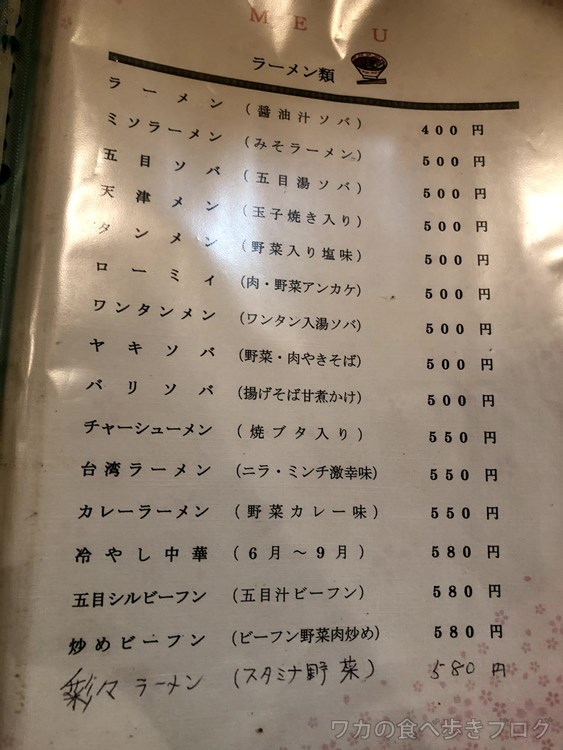 MENU
ラーメン類
ラーメン (醤油汁ソバ) 400円
ミソラーメン (みそラーメン。) 500円
五目ソバ (五目湯ソバ) 500円
天津メン (玉子焼き入り) 500円
タンメン (野菜入り塩味) 500円
ローミィ (肉・野菜アンカケ) 500円
ワンタンメン (ワンタン入湯ソバ) 500円
ヤキソバ (野菜・肉やきそば) 500円
バリソバ (揚げそば甘煮かけ) 500円
チャーシューメン (焼ブタ入り) 550円
台湾ラーメン (ニラ・ミンチ激幸味) 550円
カレーラーメン (野菜カレー味) 550円
冷やし中華 (6月〜9月) 580円
五目シルビーフン (五目汁ビーフン) 580円
炒めビーフン (ビーフン野菜肉炒め) 580円
彩々ラーメン (スタミナ野菜) 580円
ワカの食べ歩きブログ